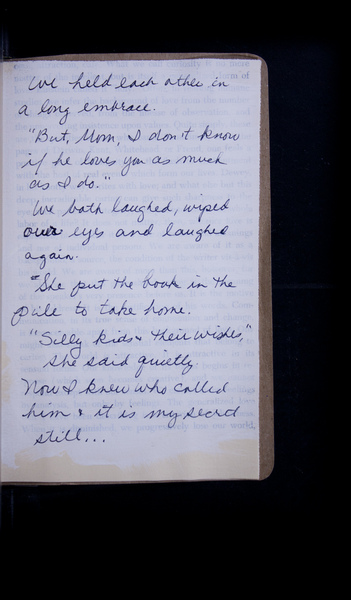 We held each other in
a long embrace.
"But, Mom, I don't know
if he loves you as much
as I do."
We both laughed, wiped
our eyes and laughed
again.
"She put the book in the
pile to take home.
"Silly kids & their wishes,"
she said quietly.
Now I knew who called
him & it is my secret
still...